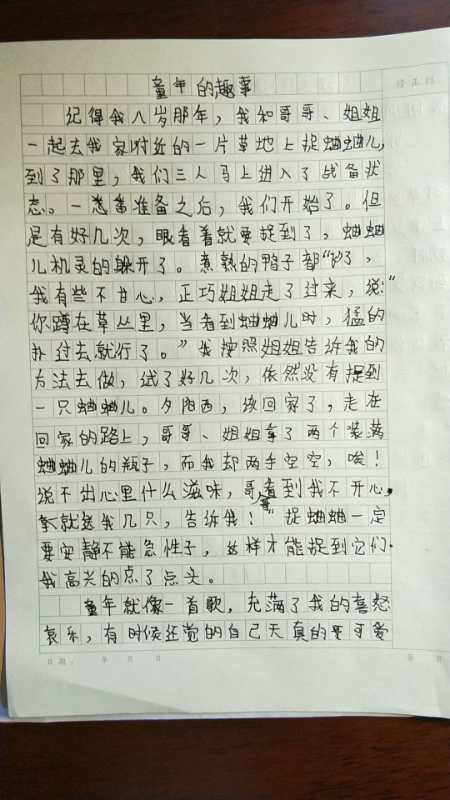 童年的趣事
记得我八岁那年，我和哥哥、姐姐
一起去我家附近的一片草地上捉蛐蛐儿，
到了那里，我们三人马上进入了战备状
态。一番准备之后，我们开始了。但
是有好几次，眼看着就要捉到了，蛐蛐
儿机灵的躲开了。煮熟的鸭子都“飞了，
我有些不甘心，正巧姐姐走了过来，说：“
你蹲在草丛里，当看到蛐蛐儿时，猛的
扑过去就行了。”我按照姐姐告诉我的
方法去做，试了好几次，依然没有捉到
一只蛐蛐儿。夕阳西，该回家了，走在
回家的路上，哥哥、姐姐拿了两个装满
蛐蛐儿的瓶子，而我却两手空空，唉！
说不出心里什么滋味，哥哥看到我不开心，
就送我几只，告诉我！“捉蛐蛐一定
要安静不能急性子，这样才能捉到它们.
我高兴的点了点头。
童年就像一首歌，充满了我的喜怒
哀乐，有时候还觉的自己天真的更可爱
日期： 年 月 日